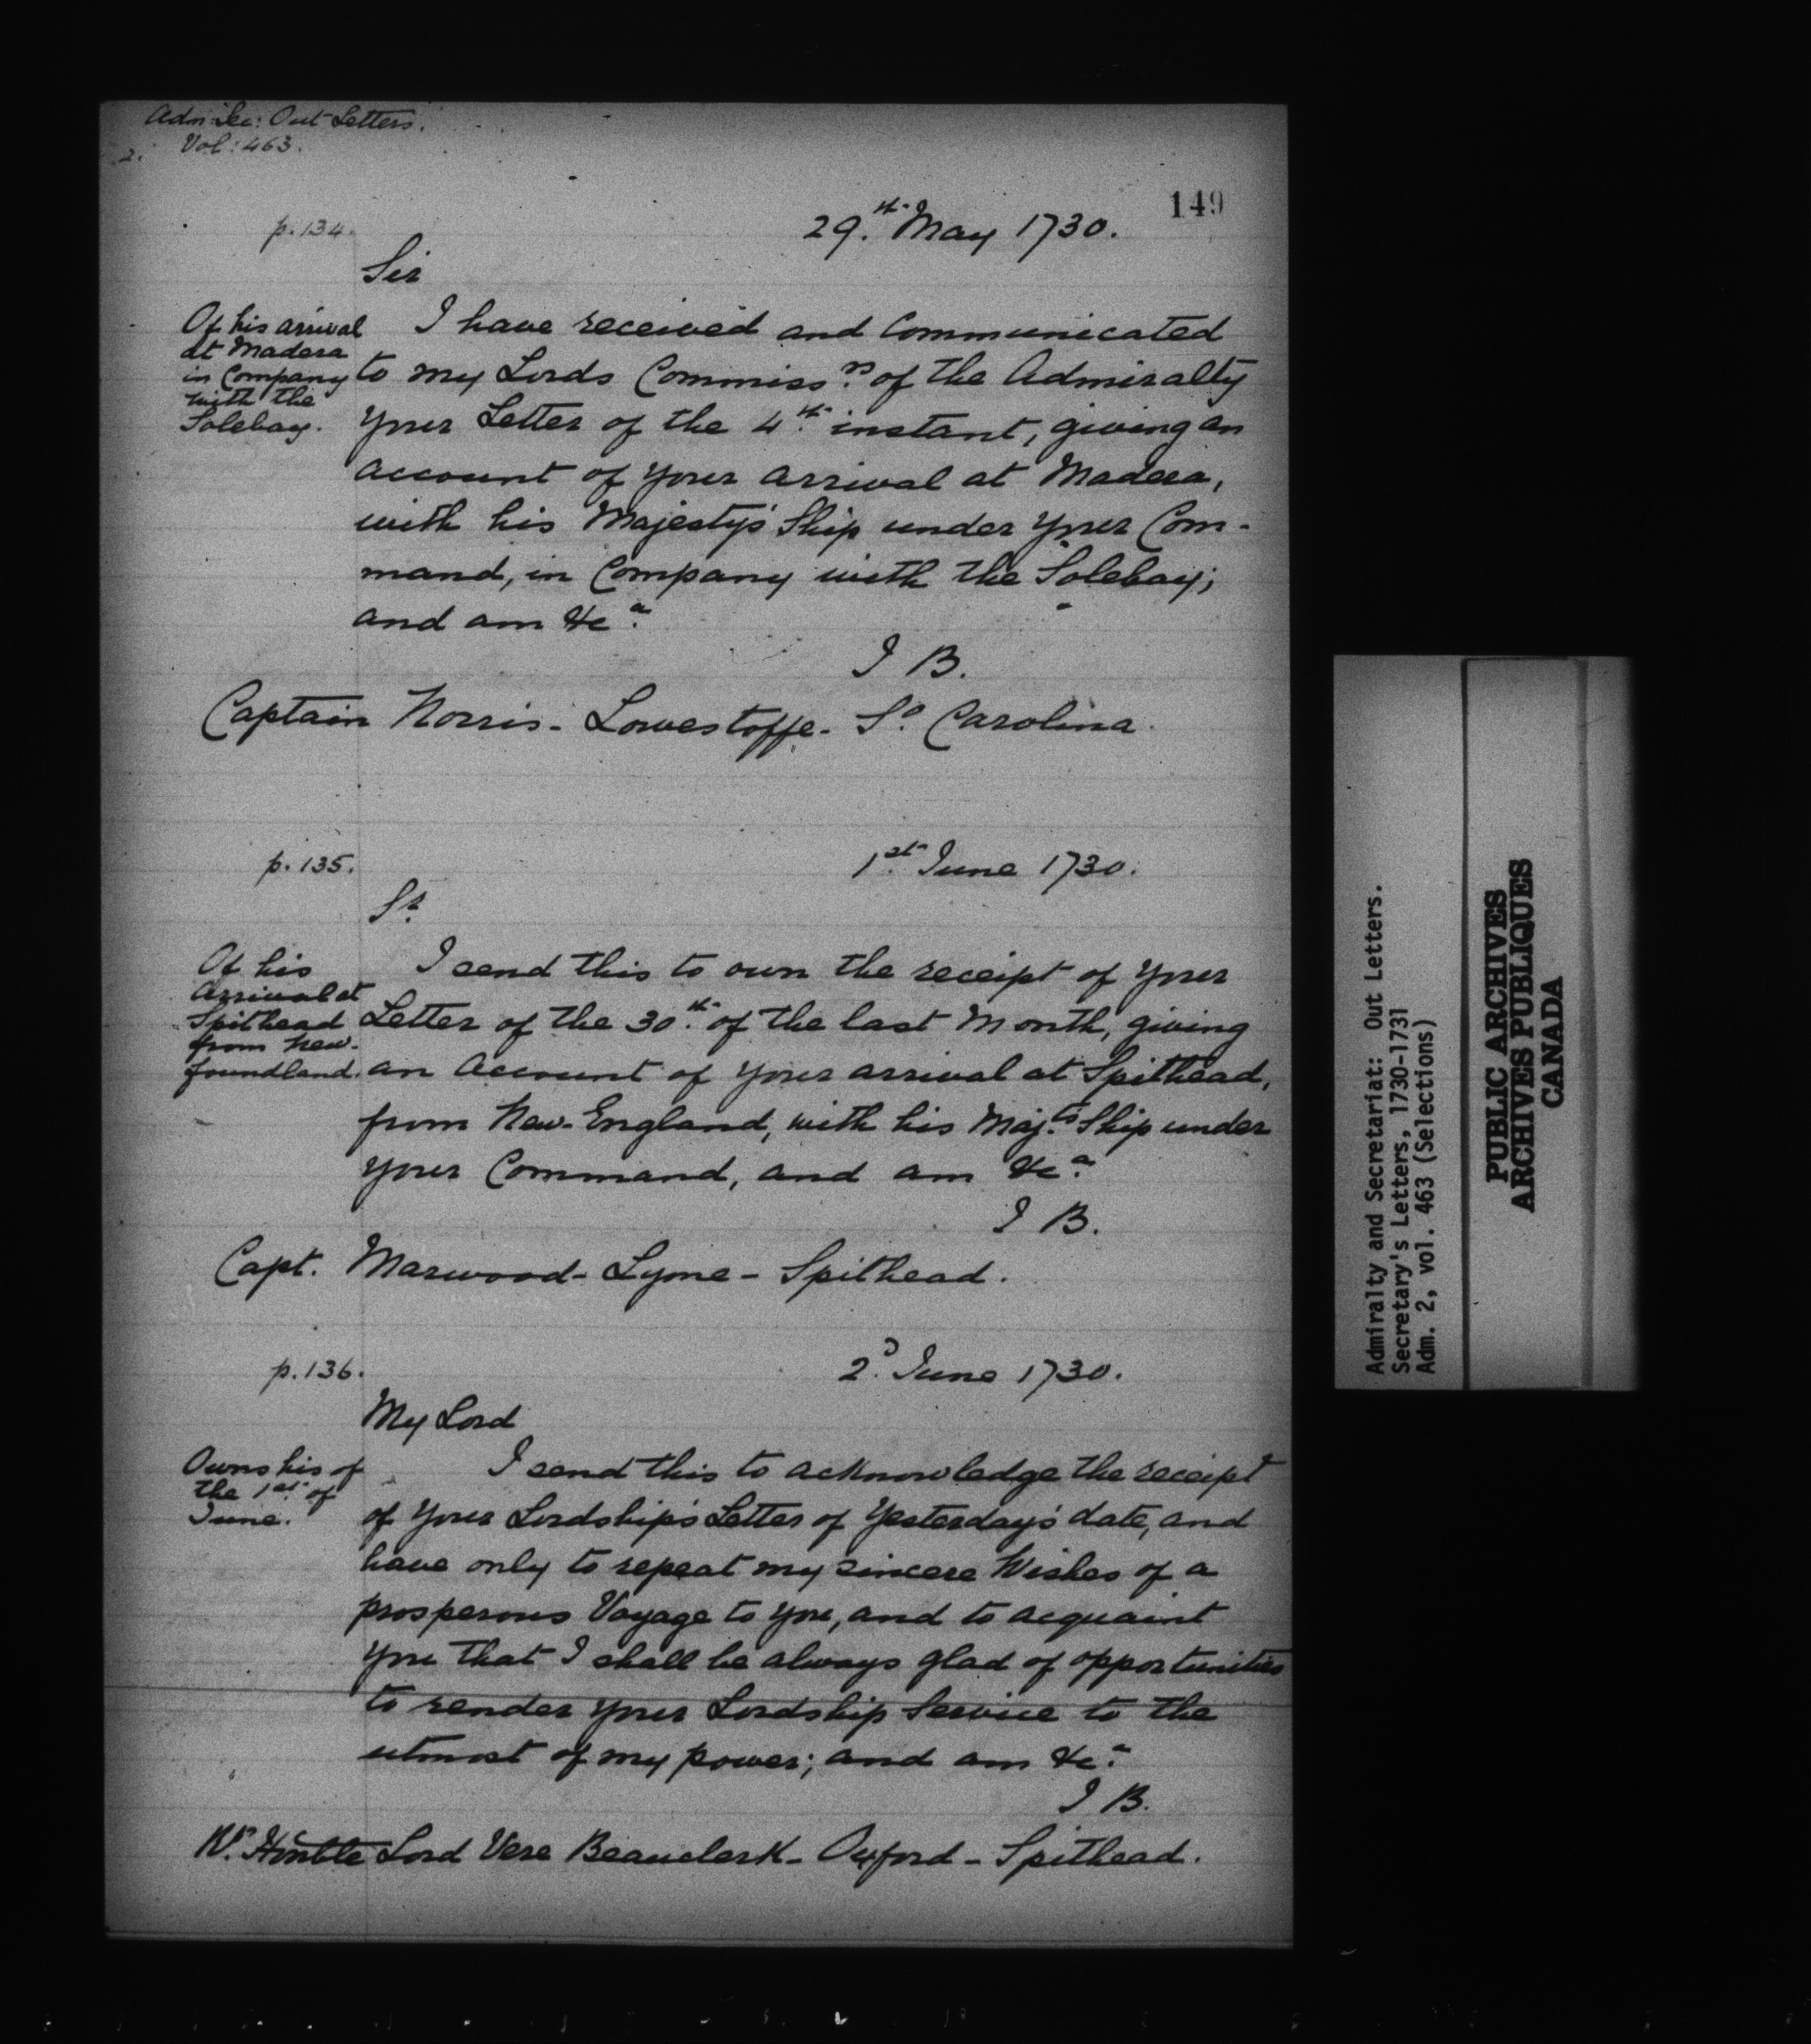 Adm: Sec: Out Letters.
2. Vol: 463.
149
p. 134.
29.th May 1730.
Sir
Of his arrival
at Madera
in Company
with the
Solebay.
I have received and Communicated
to my Lords Commiss.rs of the Admiralty
Your Letter of the 4.th instant, giving an
account of your arrival at Madera,
with his Majesty's Ship under your Com-
mand, in Company with the Solebay;
and am &c.a
J B.
Captain Norris - Lowestoffe - So. Carolina.
p. 135.
1.st June 1730.
Sr.
Of his
Arrival at
Spithead
from New-
foundland.
I send this to own the receipt of your
Letter of the 30.th of the last Month, giving
an Account of your arrival at Spithead,
from New-England, with his Maj.ts Ship under
your Command, and am &c.a
J B.
Capt. Marwood - Lyme - Spithead.
p. 136.
2.d June 1730.
My Lord
Owns his of
the 1st. of
June.
I send this to acknowledge the receipt
of Your Lordship's Letter of Yesterday's date, and
have only to repeat my sincere Wishes of a
prosperous Voyage to you, and to acquaint
you that I shall be always glad of opportunities
to render your Lordship Service to the
utmost of my power; and am &c.a
J B.
Rt. Honble Lord Vere Beauclerk - Oxford - Spithead.
Admiralty and Secretariat: Out Letters.
Secretary's Letters, 1730-1731
Adm. 2, vol. 463 (Selections)
PUBLIC ARCHIVES
ARCHIVES PUBLIQUES
CANADA